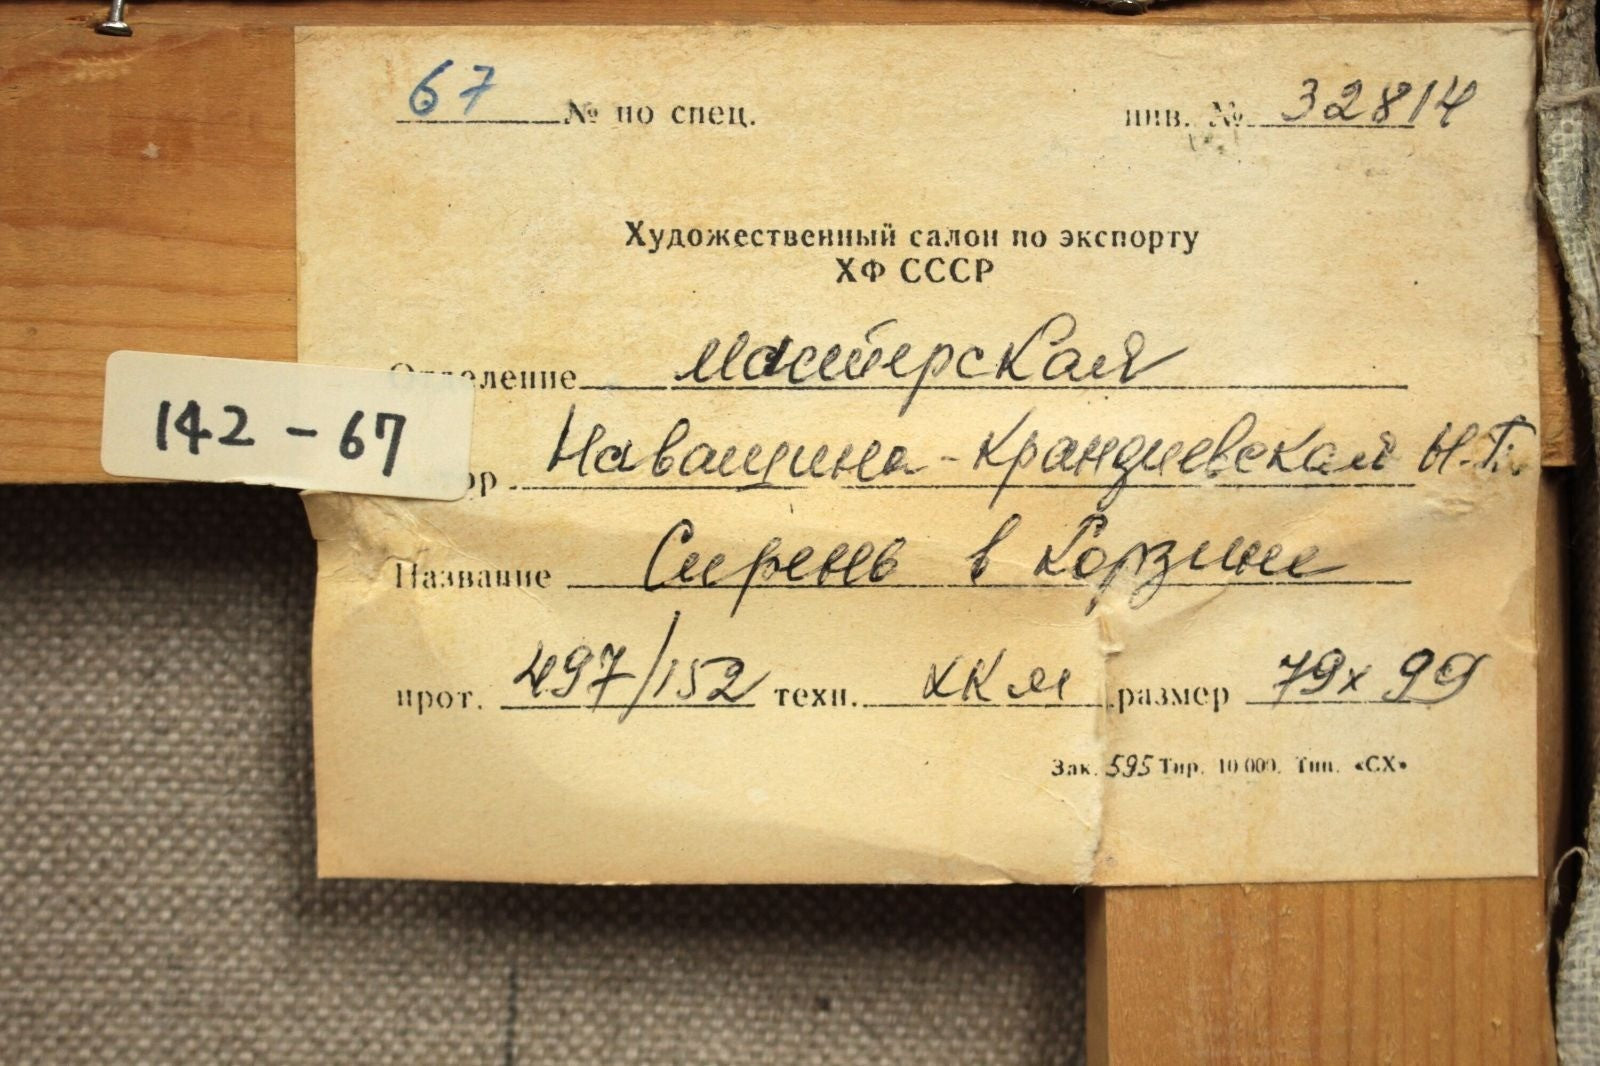 67 № по спец. инв. № 32814
Художественный салон по экспорту
ХФ СССР
Отделение мастерская
142 - 67
ор Наващина-Крандиевская Н.П.
Название Сирень в корзине
прот. 497/152 техн. хкм размер 79х99
Зак. 595 Тир. 10 000. Тип. «СХ»